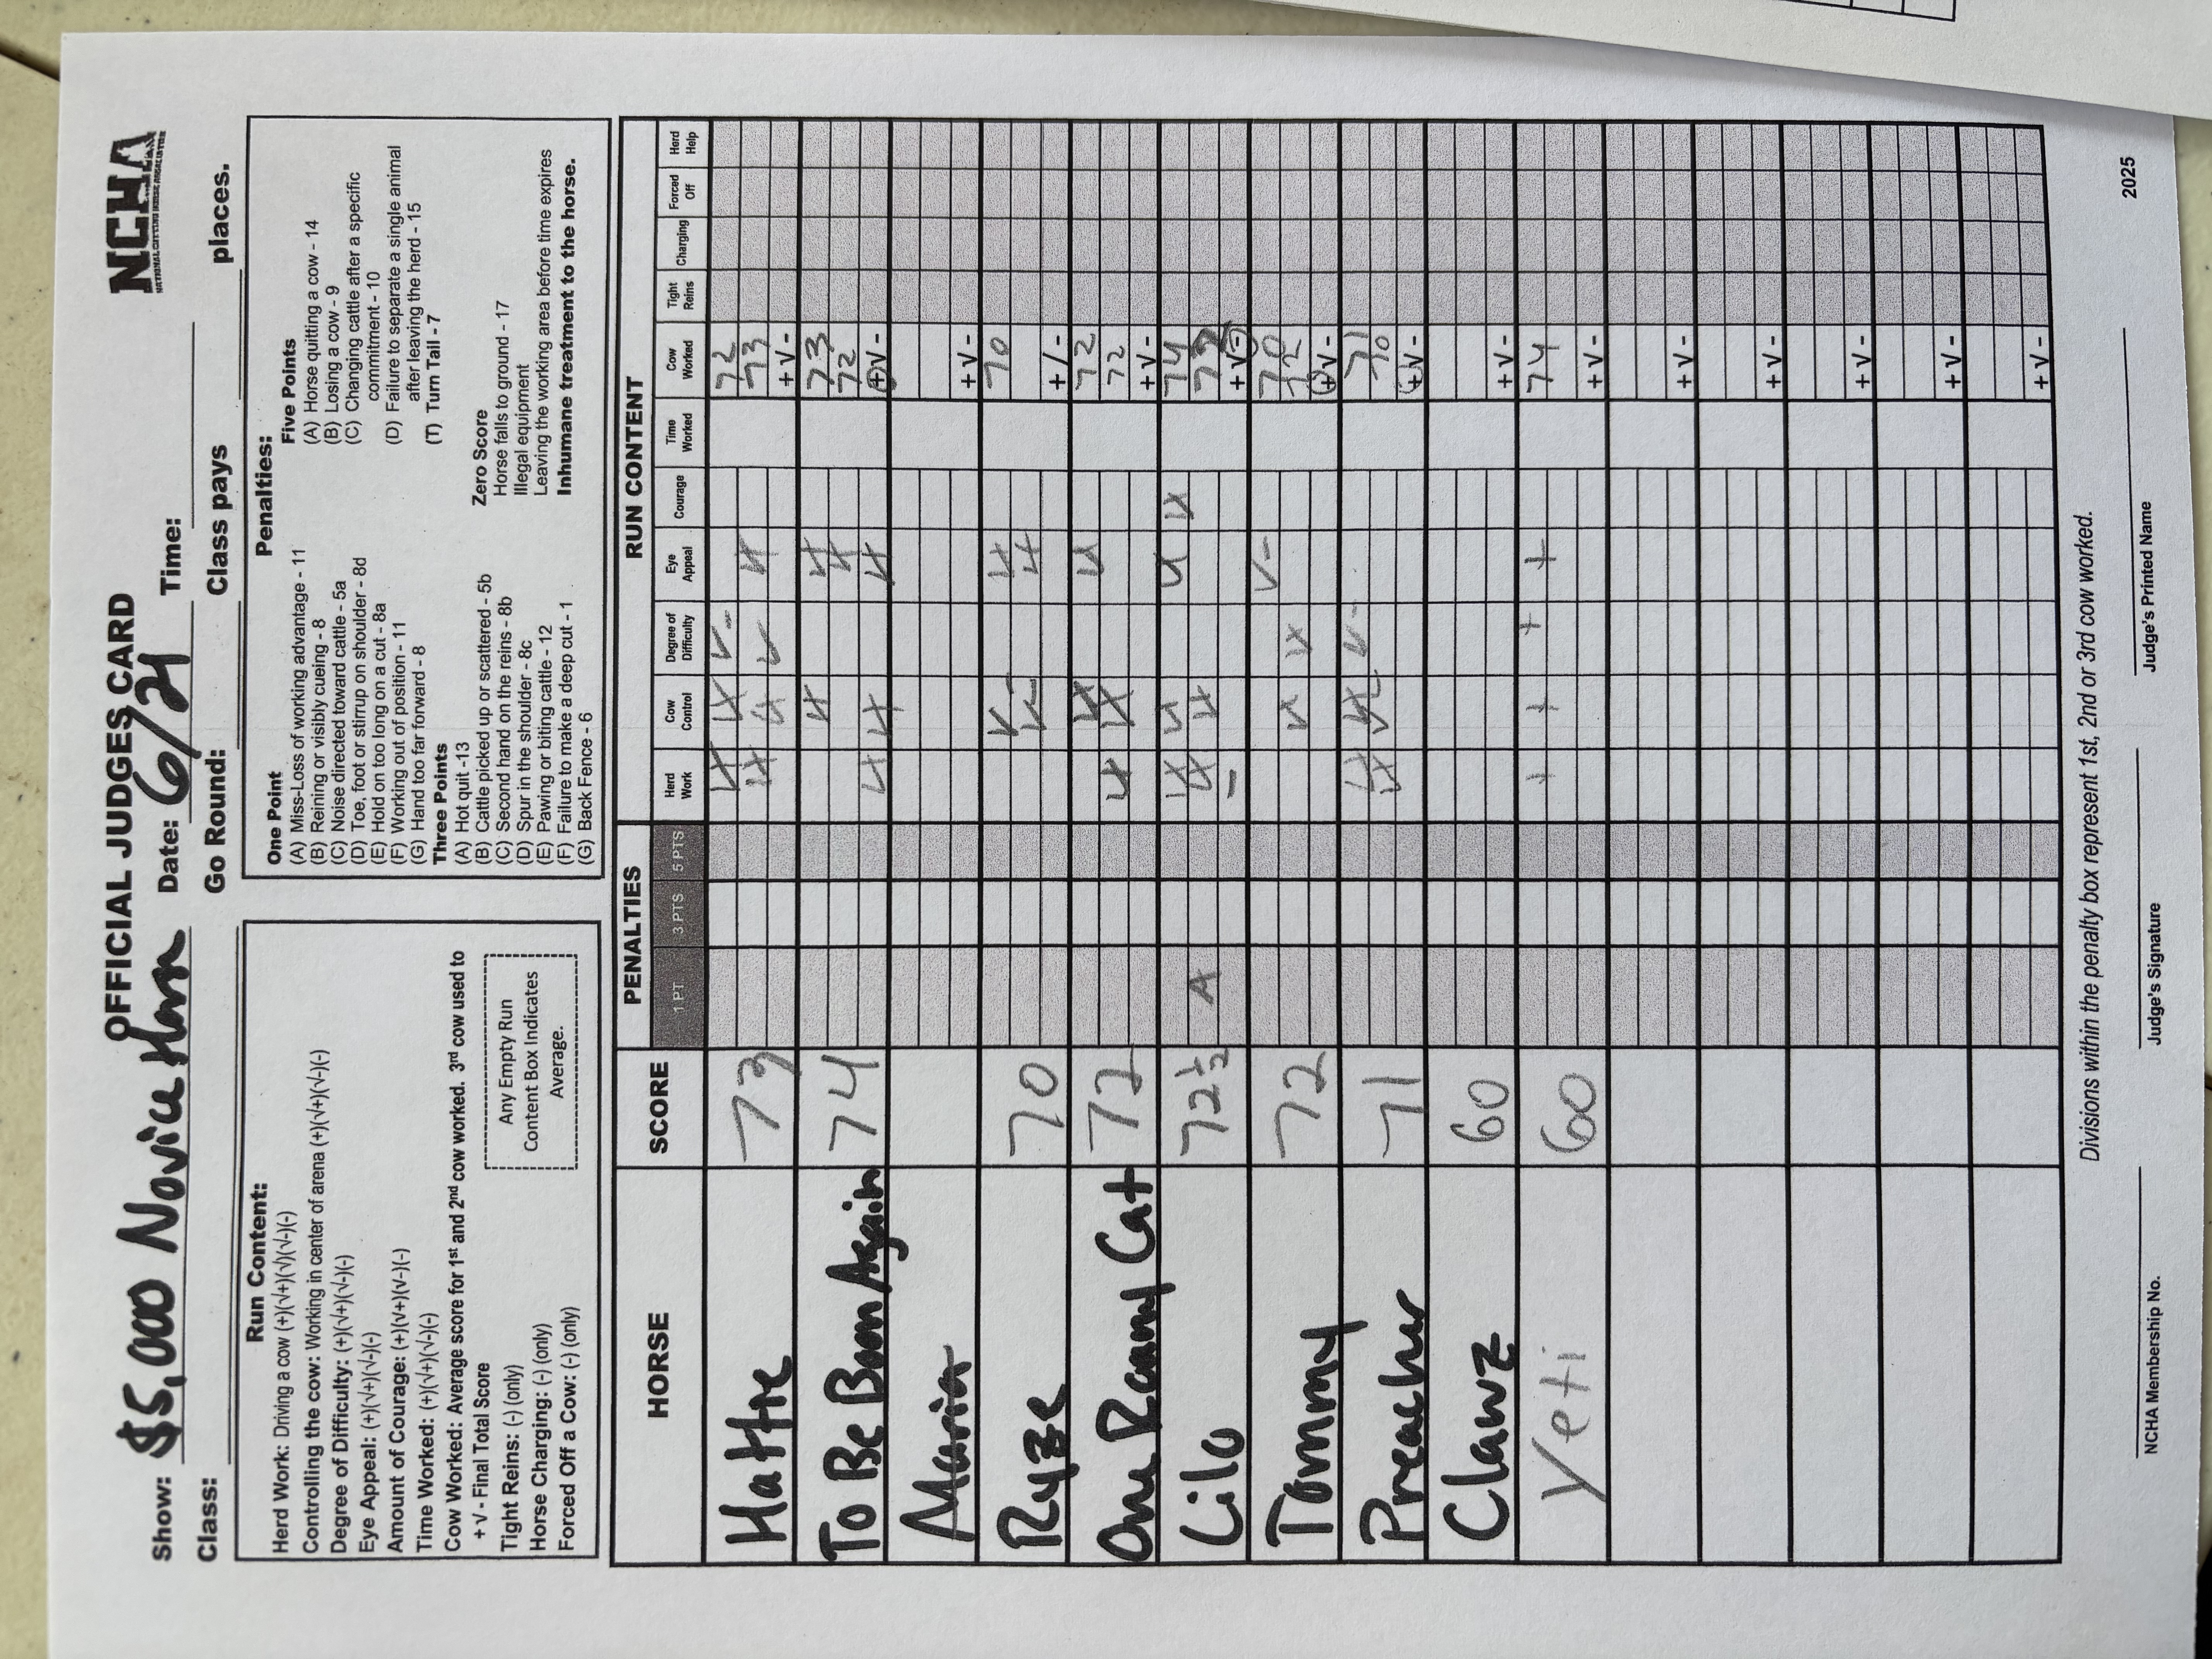 OFFICIAL JUDGES CARD
NCHA
Show: $5,000 Novice Horse Date: 6/21 Time:
Class: Go Round: Class pays places.
Run Content:
Herd Work: Driving a cow (+)(√+)(√)(√-)(-)
Controlling the cow: Working in center of arena (+)(√+)(√-)(-)
Degree of Difficulty: (+)(√+)(√-)(-)
Eye Appeal: (+)(√+)(√-)(-)
Amount of Courage: (+)(√+)(√-)(-)
Time Worked: (+)(√+)(√-)(-)
Cow Worked: Average score for 1st and 2nd cow worked. 3rd cow used to
+ √ - Final Total Score
Tight Reins: (-) (only)
Horse Charging: (-) (only)
Forced Off a Cow: (-) (only)
Any Empty Run
Content Box Indicates
Average.
Penalties:
One Point
(A) Miss-Loss of working advantage - 11
(B) Reining or visibly cueing - 8
(C) Noise directed toward cattle - 5a
(D) Toe, foot or stirrup on shoulder - 8d
(E) Hold on too long on a cut - 8a
(F) Working out of position - 11
(G) Hand too far forward - 8
Three Points
(A) Hot quit -13
(B) Cattle picked up or scattered - 5b
(C) Second hand on the reins - 8b
(D) Spur in the shoulder - 8c
(E) Pawing or biting cattle - 12
(F) Failure to make a deep cut - 1
(G) Back Fence - 6
Five Points
(A) Horse quitting a cow - 14
(B) Losing a cow - 9
(C) Changing cattle after a specific
commitment - 10
(D) Failure to separate a single animal
after leaving the herd - 15
(T) Turn Tail - 7
Zero Score
Horse falls to ground - 17
Illegal equipment
Leaving the working area before time expires
Inhumane treatment to the horse.
HORSE SCORE PENALTIES RUN CONTENT
1 PT 3 PTS 5 PTS Herd Work Cow Control Degree of Difficulty Eye Appeal Courage Time Worked Cow Worked Tight Reins Charging Forced Off Herd Help
Hattie 73 √+ √+ √- 72
√+ √+ √ √+ 73
+ √ -
To Be Born Again 74 √+ √+ 73
√+ 72
√+ √+ √+ + √ -
Maria + √ -
Ryze 70 √ √+ 70
√- √+
+/-
One Raany Cat 72 √+ √ 72
√+ √+ 72
+ √ -
Lilo 72 1/2 √+ √ √ √+ 74
A √+ √+
- + √ -
Tommy 72 √- 70
√+ √+ 72
+ √ -
Preacher 71 √+ √+ √- 71
√+ 70
+ √ -
Clawz 60 + √ -
Yeti 60 + + + + 74
+ √ -
+ √ -
+ √ -
+ √ -
+ √ -
+ √ -
Divisions within the penalty box represent 1st, 2nd or 3rd cow worked.
NCHA Membership No. Judge's Signature Judge's Printed Name
2025